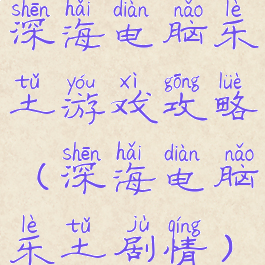 shēn hǎi diàn nǎo lè
深海电脑乐
tǔ yóu xì gōng lüè
土游戏攻略
shēn hǎi diàn nǎo
（深海电脑
lè tǔ jù qíng
乐土剧情）